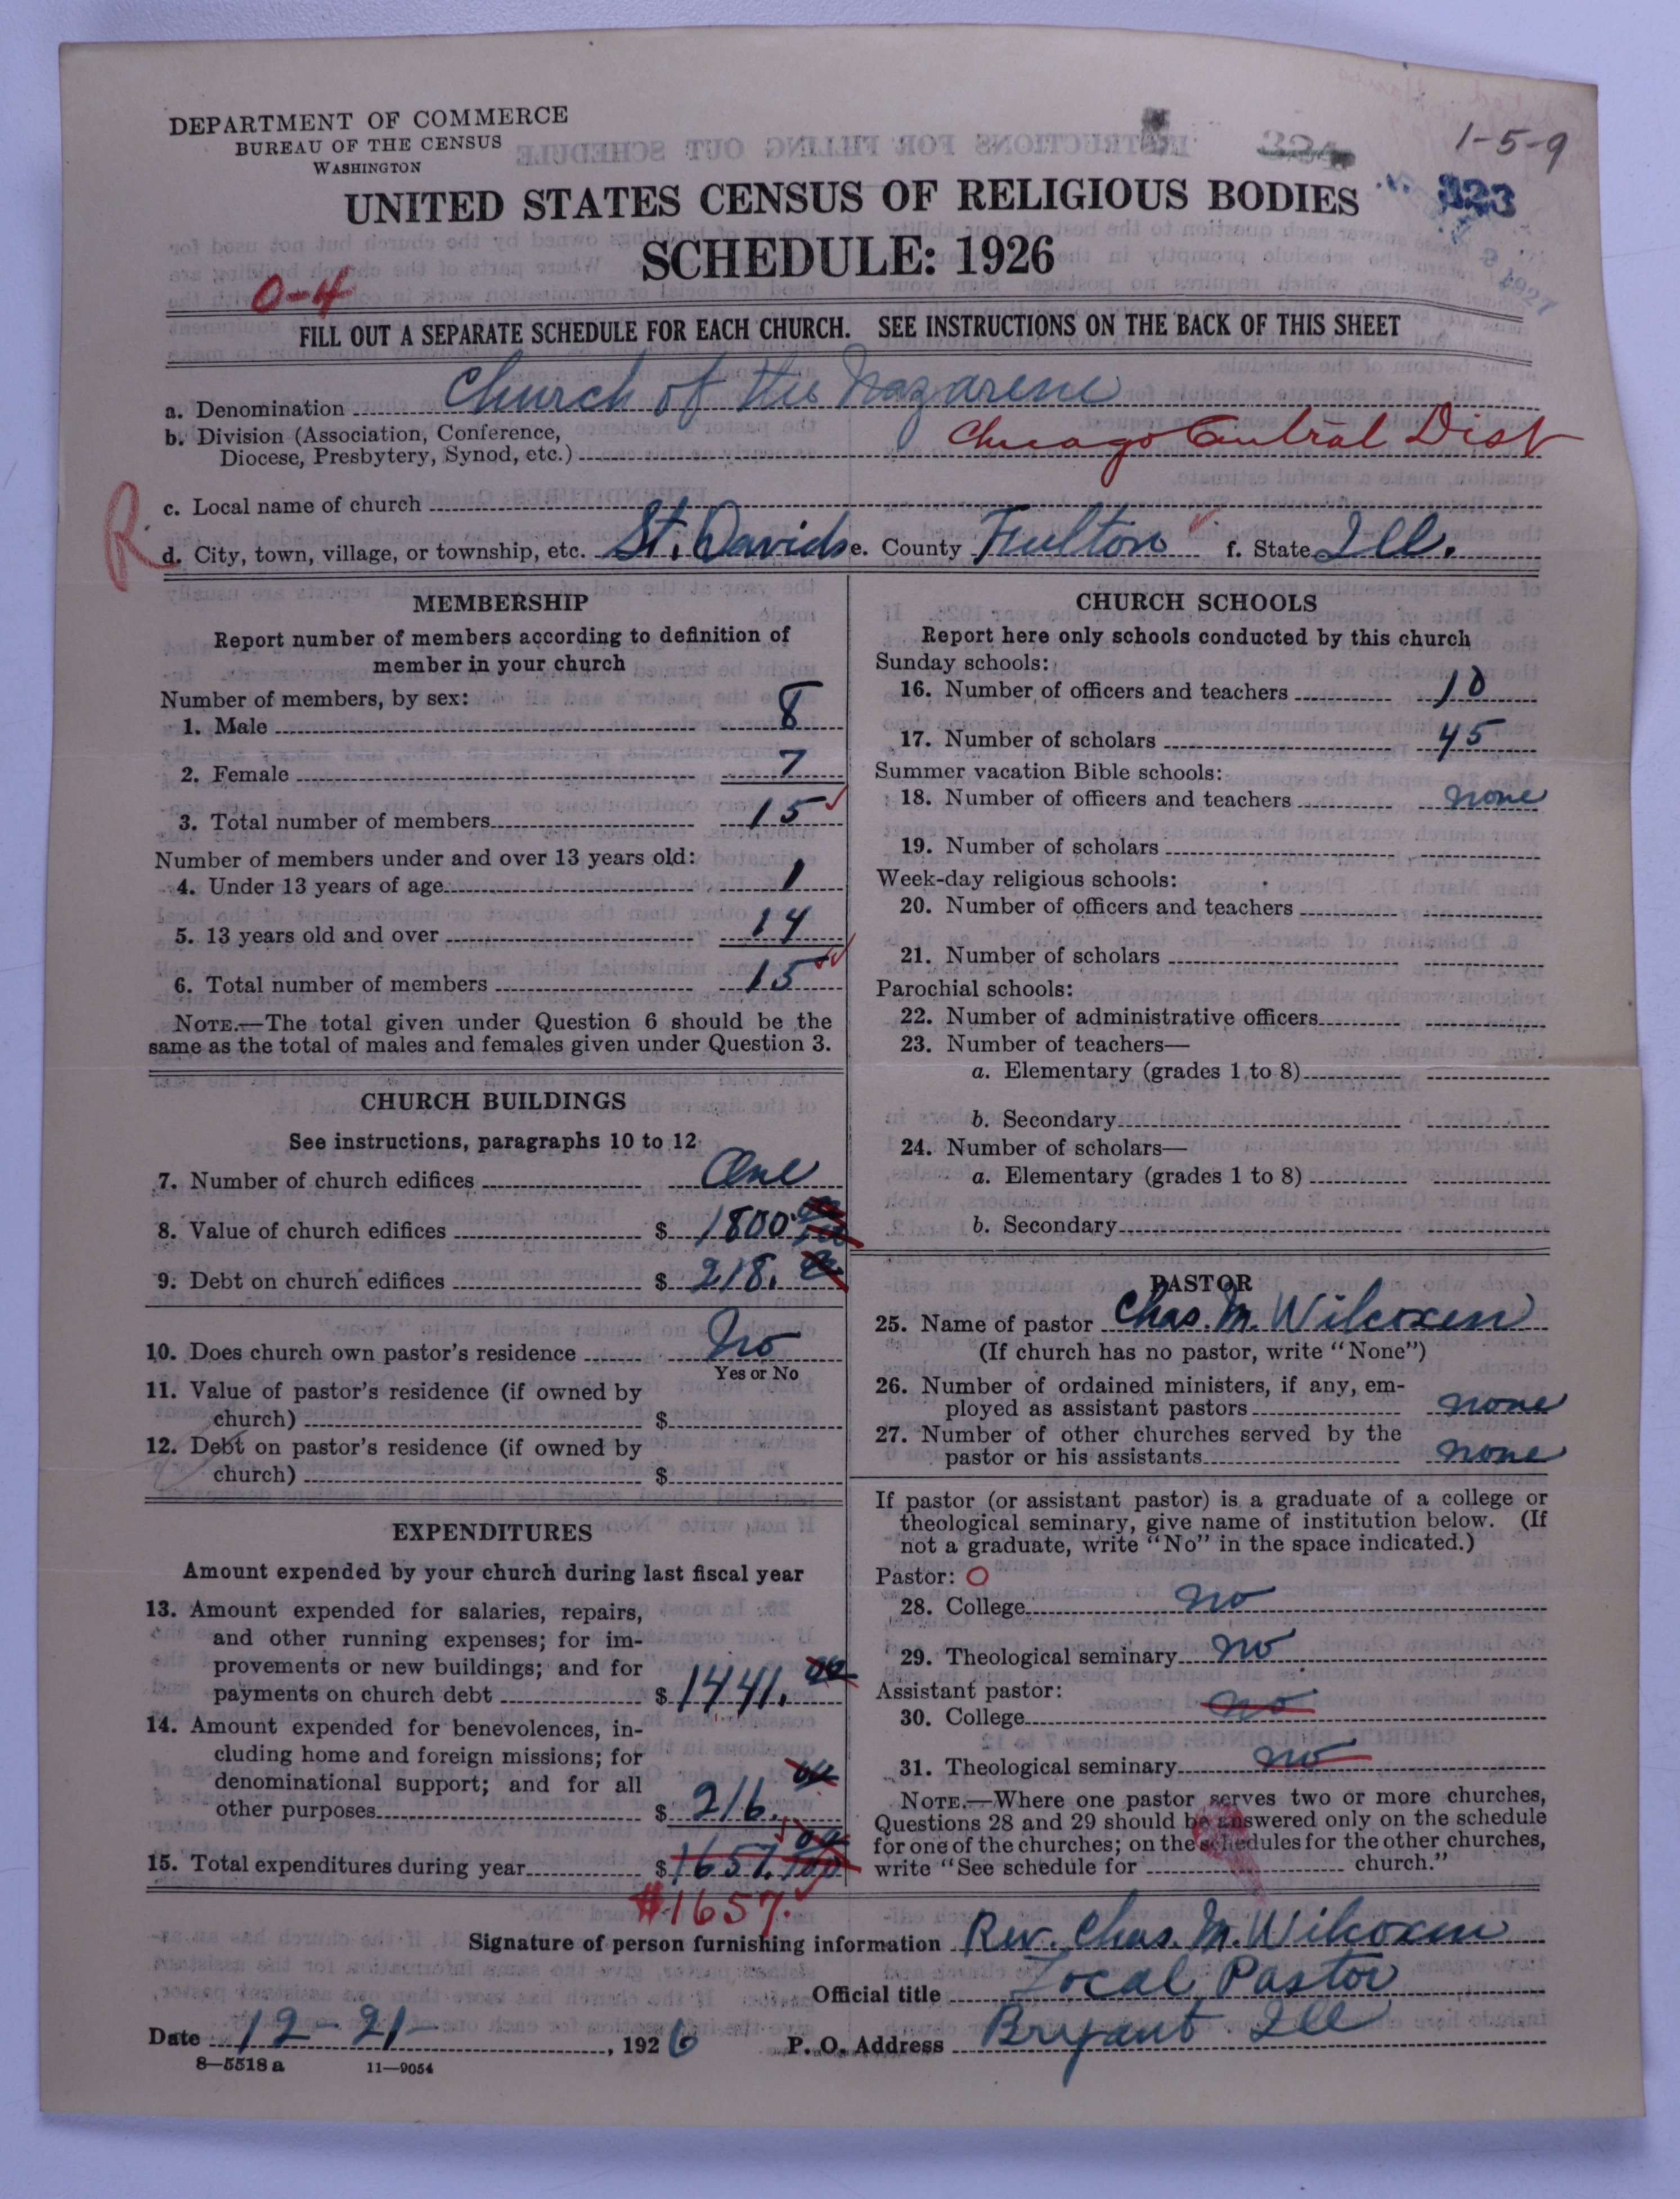 DEPARTMENT OF COMMERCE
BUREAU OF THE CENSUS
WASHINGTON
1-5-9
UNITED STATES CENSUS OF RELIGIOUS BODIES
SCHEDULE: 1926
0-4
FILL OUT A SEPARATE SCHEDULE FOR EACH CHURCH. SEE INSTRUCTIONS ON THE BACK OF THIS SHEET
a. Denomination Church of the Nazarene
b. Division (Association, Conference,
Diocese, Presbytery, Synod, etc.) Chicago Central Dist
R
c. Local name of church
d. City, town, village, or township, etc. St. Davids e. County Fulton f. State Ill.
MEMBERSHIP
Report number of members according to definition of
member in your church
Number of members, by sex:
1. Male 8
2. Female 7
3. Total number of members 15
Number of members under and over 13 years old:
4. Under 13 years of age 1
5. 13 years old and over 14
6. Total number of members 15
NOTE.—The total given under Question 6 should be the
same as the total of males and females given under Question 3.
CHURCH BUILDINGS
See instructions, paragraphs 10 to 12
7. Number of church edifices One
8. Value of church edifices $ 1800.
9. Debt on church edifices $ 218.
10. Does church own pastor's residence No
Yes or No
11. Value of pastor's residence (if owned by
church) $
12. Debt on pastor's residence (if owned by
church) $
EXPENDITURES
Amount expended by your church during last fiscal year
13. Amount expended for salaries, repairs,
and other running expenses; for im-
provements or new buildings; and for
payments on church debt $ 1441. 00
14. Amount expended for benevolences, in-
cluding home and foreign missions; for
denominational support; and for all
other purposes $ 216. 00
15. Total expenditures during year $ 1657. 00/100
#1657.
CHURCH SCHOOLS
Report here only schools conducted by this church
Sunday schools:
16. Number of officers and teachers 10
17. Number of scholars 45
Summer vacation Bible schools:
18. Number of officers and teachers none
19. Number of scholars
Week-day religious schools:
20. Number of officers and teachers
21. Number of scholars
Parochial schools:
22. Number of administrative officers
23. Number of teachers—
a. Elementary (grades 1 to 8)
b. Secondary
24. Number of scholars—
a. Elementary (grades 1 to 8)
b. Secondary
PASTOR
25. Name of pastor Chas. M. Wilcoxen
(If church has no pastor, write "None")
26. Number of ordained ministers, if any, em-
ployed as assistant pastors none
27. Number of other churches served by the
pastor or his assistants none
If pastor (or assistant pastor) is a graduate of a college or
theological seminary, give name of institution below. (If
not a graduate, write "No" in the space indicated.)
Pastor: O
28. College no
29. Theological seminary no
Assistant pastor:
30. College no
31. Theological seminary no
NOTE.—Where one pastor serves two or more churches,
Questions 28 and 29 should be answered only on the schedule
for one of the churches; on the schedules for the other churches,
write "See schedule for church."
Signature of person furnishing information Rev. Chas. M. Wilcoxen
Official title Local Pastor
Date 12-21-, 1926 P. O. Address Bryant Ill
8—5518 a 11—9054